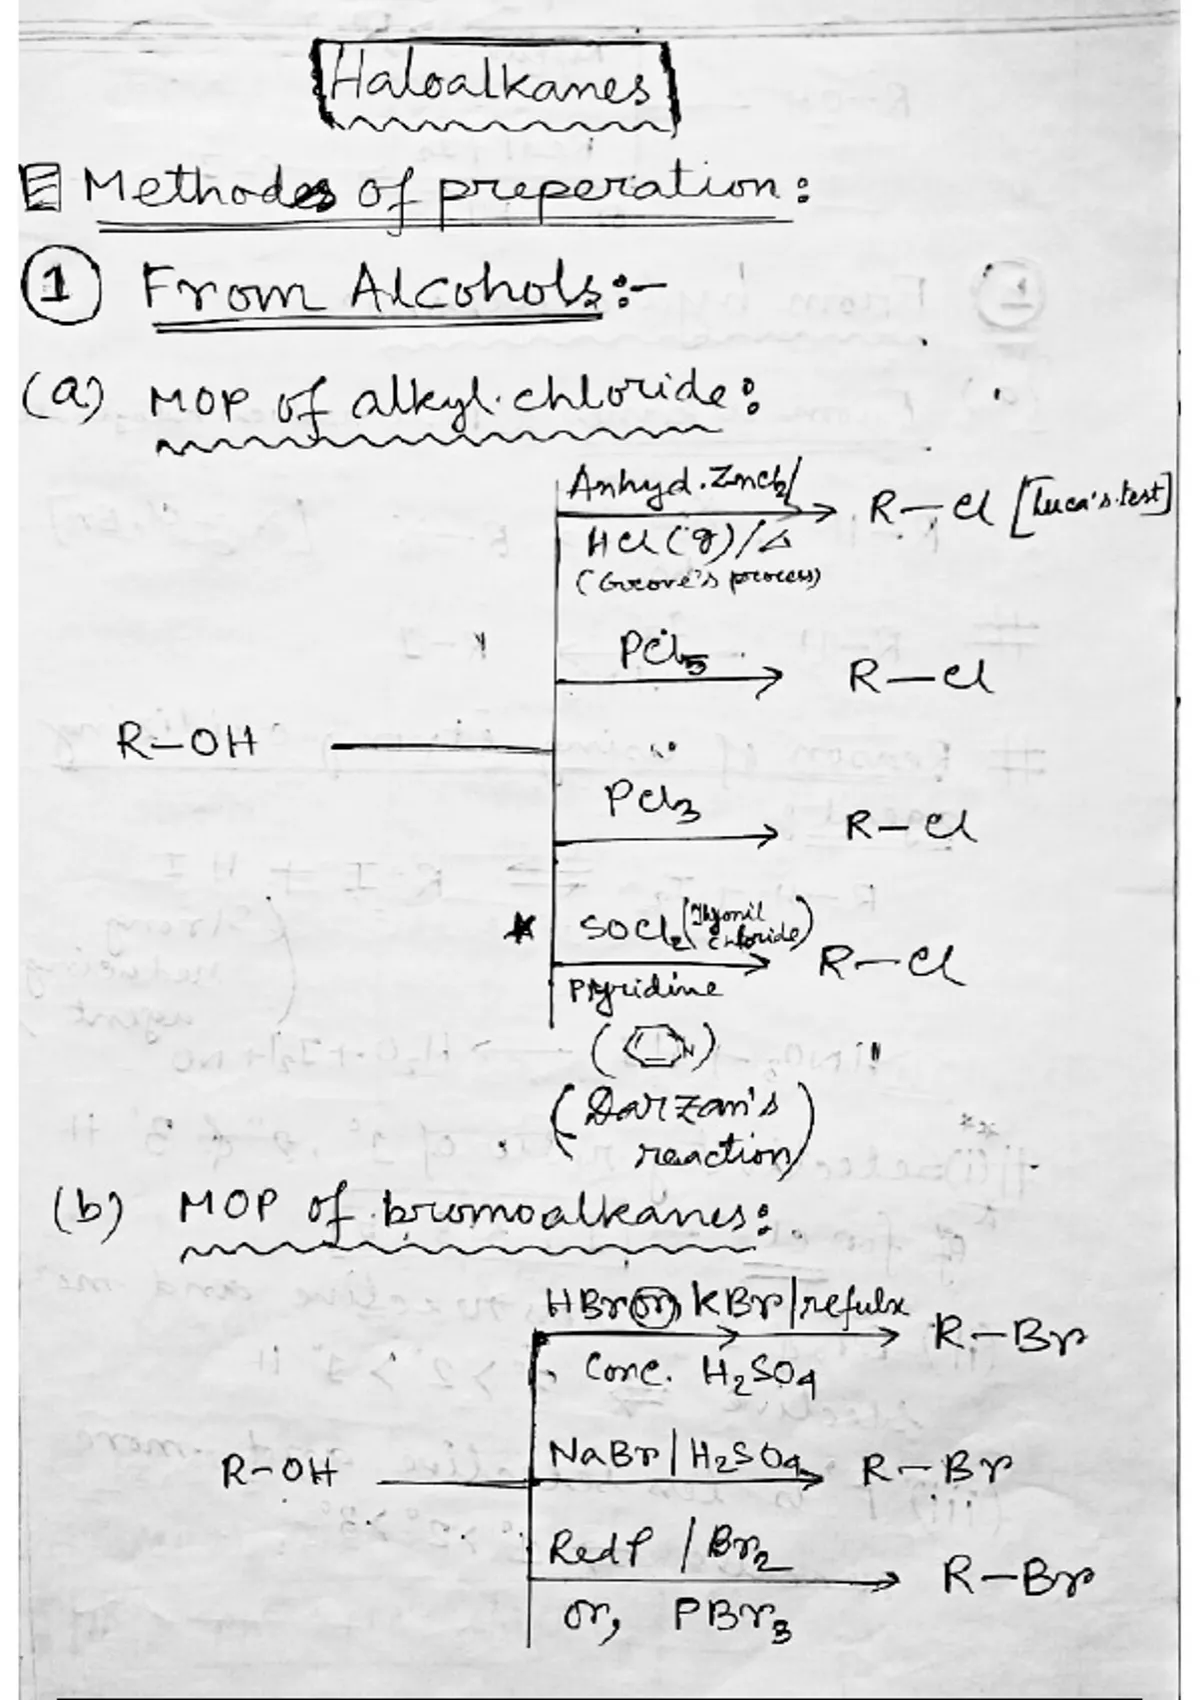 Haloalkanes
Methodes of preperation:
1 From Alcohols:-
(a) MOP of alkyl chloride:
Anhyd. ZnCl2/
R-Cl [Luca's test]
HCl (g)/Δ
(Grove's process)
PCl5
R-Cl
R-OH
PCl3
R-Cl
* SOCl2 (Thyonil chloride)
R-Cl
Pyridine
(N)
(Darzan's
reaction)
(b) MOP of bromoalkanes:
HBr or KBr/refulx
R-Br
Conc. H2SO4
NaBr | H2SO4
R-OH
R-Br
Red P / Br2
R-Br
or, PBr3